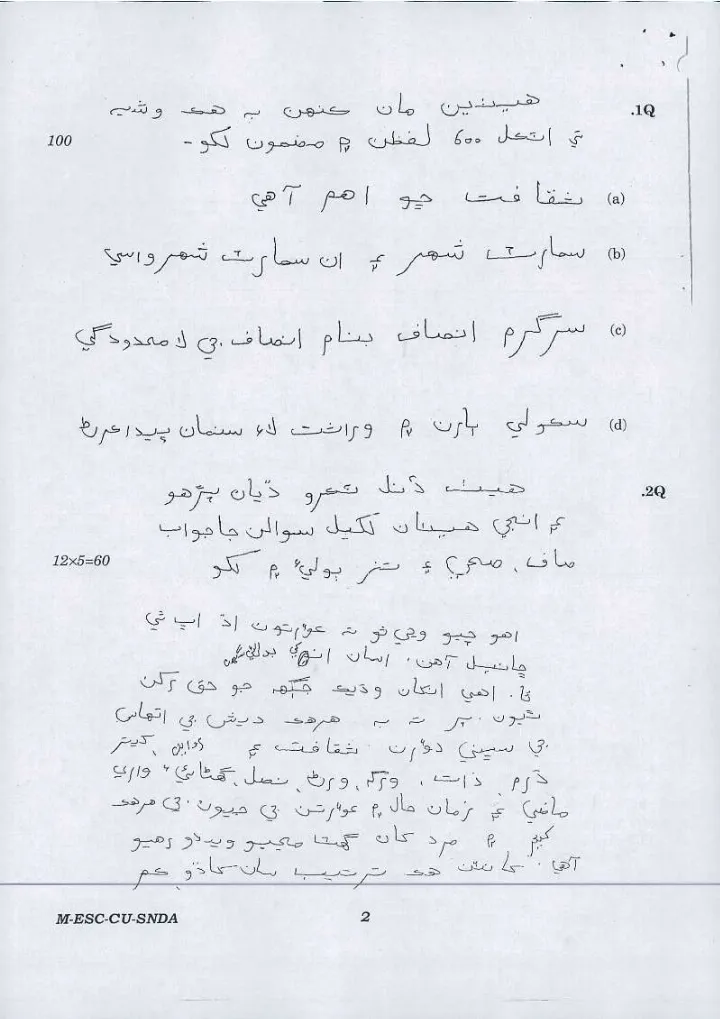 .1Q هيٺين مان ڪنهن بہ هڪ وشيہ
تي اٽڪل 600 لفظن ۾ مضمون لکو-
100
(a) ثقافت ڇو اهم آهي
(b) سمارٽ شهر ۽ ان سمارٽ شهرواسي
(c) سرگرم انصاف بنام انصاف جي لامحدودگي
(d) سڪولي ٻارن ۾ وراثت لاءِ سنمان پيدا ڪرڻ
.2Q هيٺ ڏنل ٽڪرو ڌيان پڙهو
۽ انجي هيٺان لکيل سوالن جا جواب
صاف، صحيح ۽ ٻوليءَ ۾ لکو
12×5=60
اهو چيو وڃي ٿو تہ عورتون اڌ اڀ ٿي
آهن. اسان
اهي انکان وڌيڪ جڳهہ جو حق رکن
ٿيون. پر تہ بہ هرهڪ ديش جي اتهاس
جي سڀني دؤرن ثقافت ۽
ڌرم ذات، ورگہ، ورڻ، نسل، واري
ماضي ۽ زمان حال ۾ عورتن جي جيون جي هرهڪ
۾ مرد کان گهٽ سمجهيو ويندو رهيو
آهي. هڪ ترتيب سان ڪم
M-ESC-CU-SNDA
2